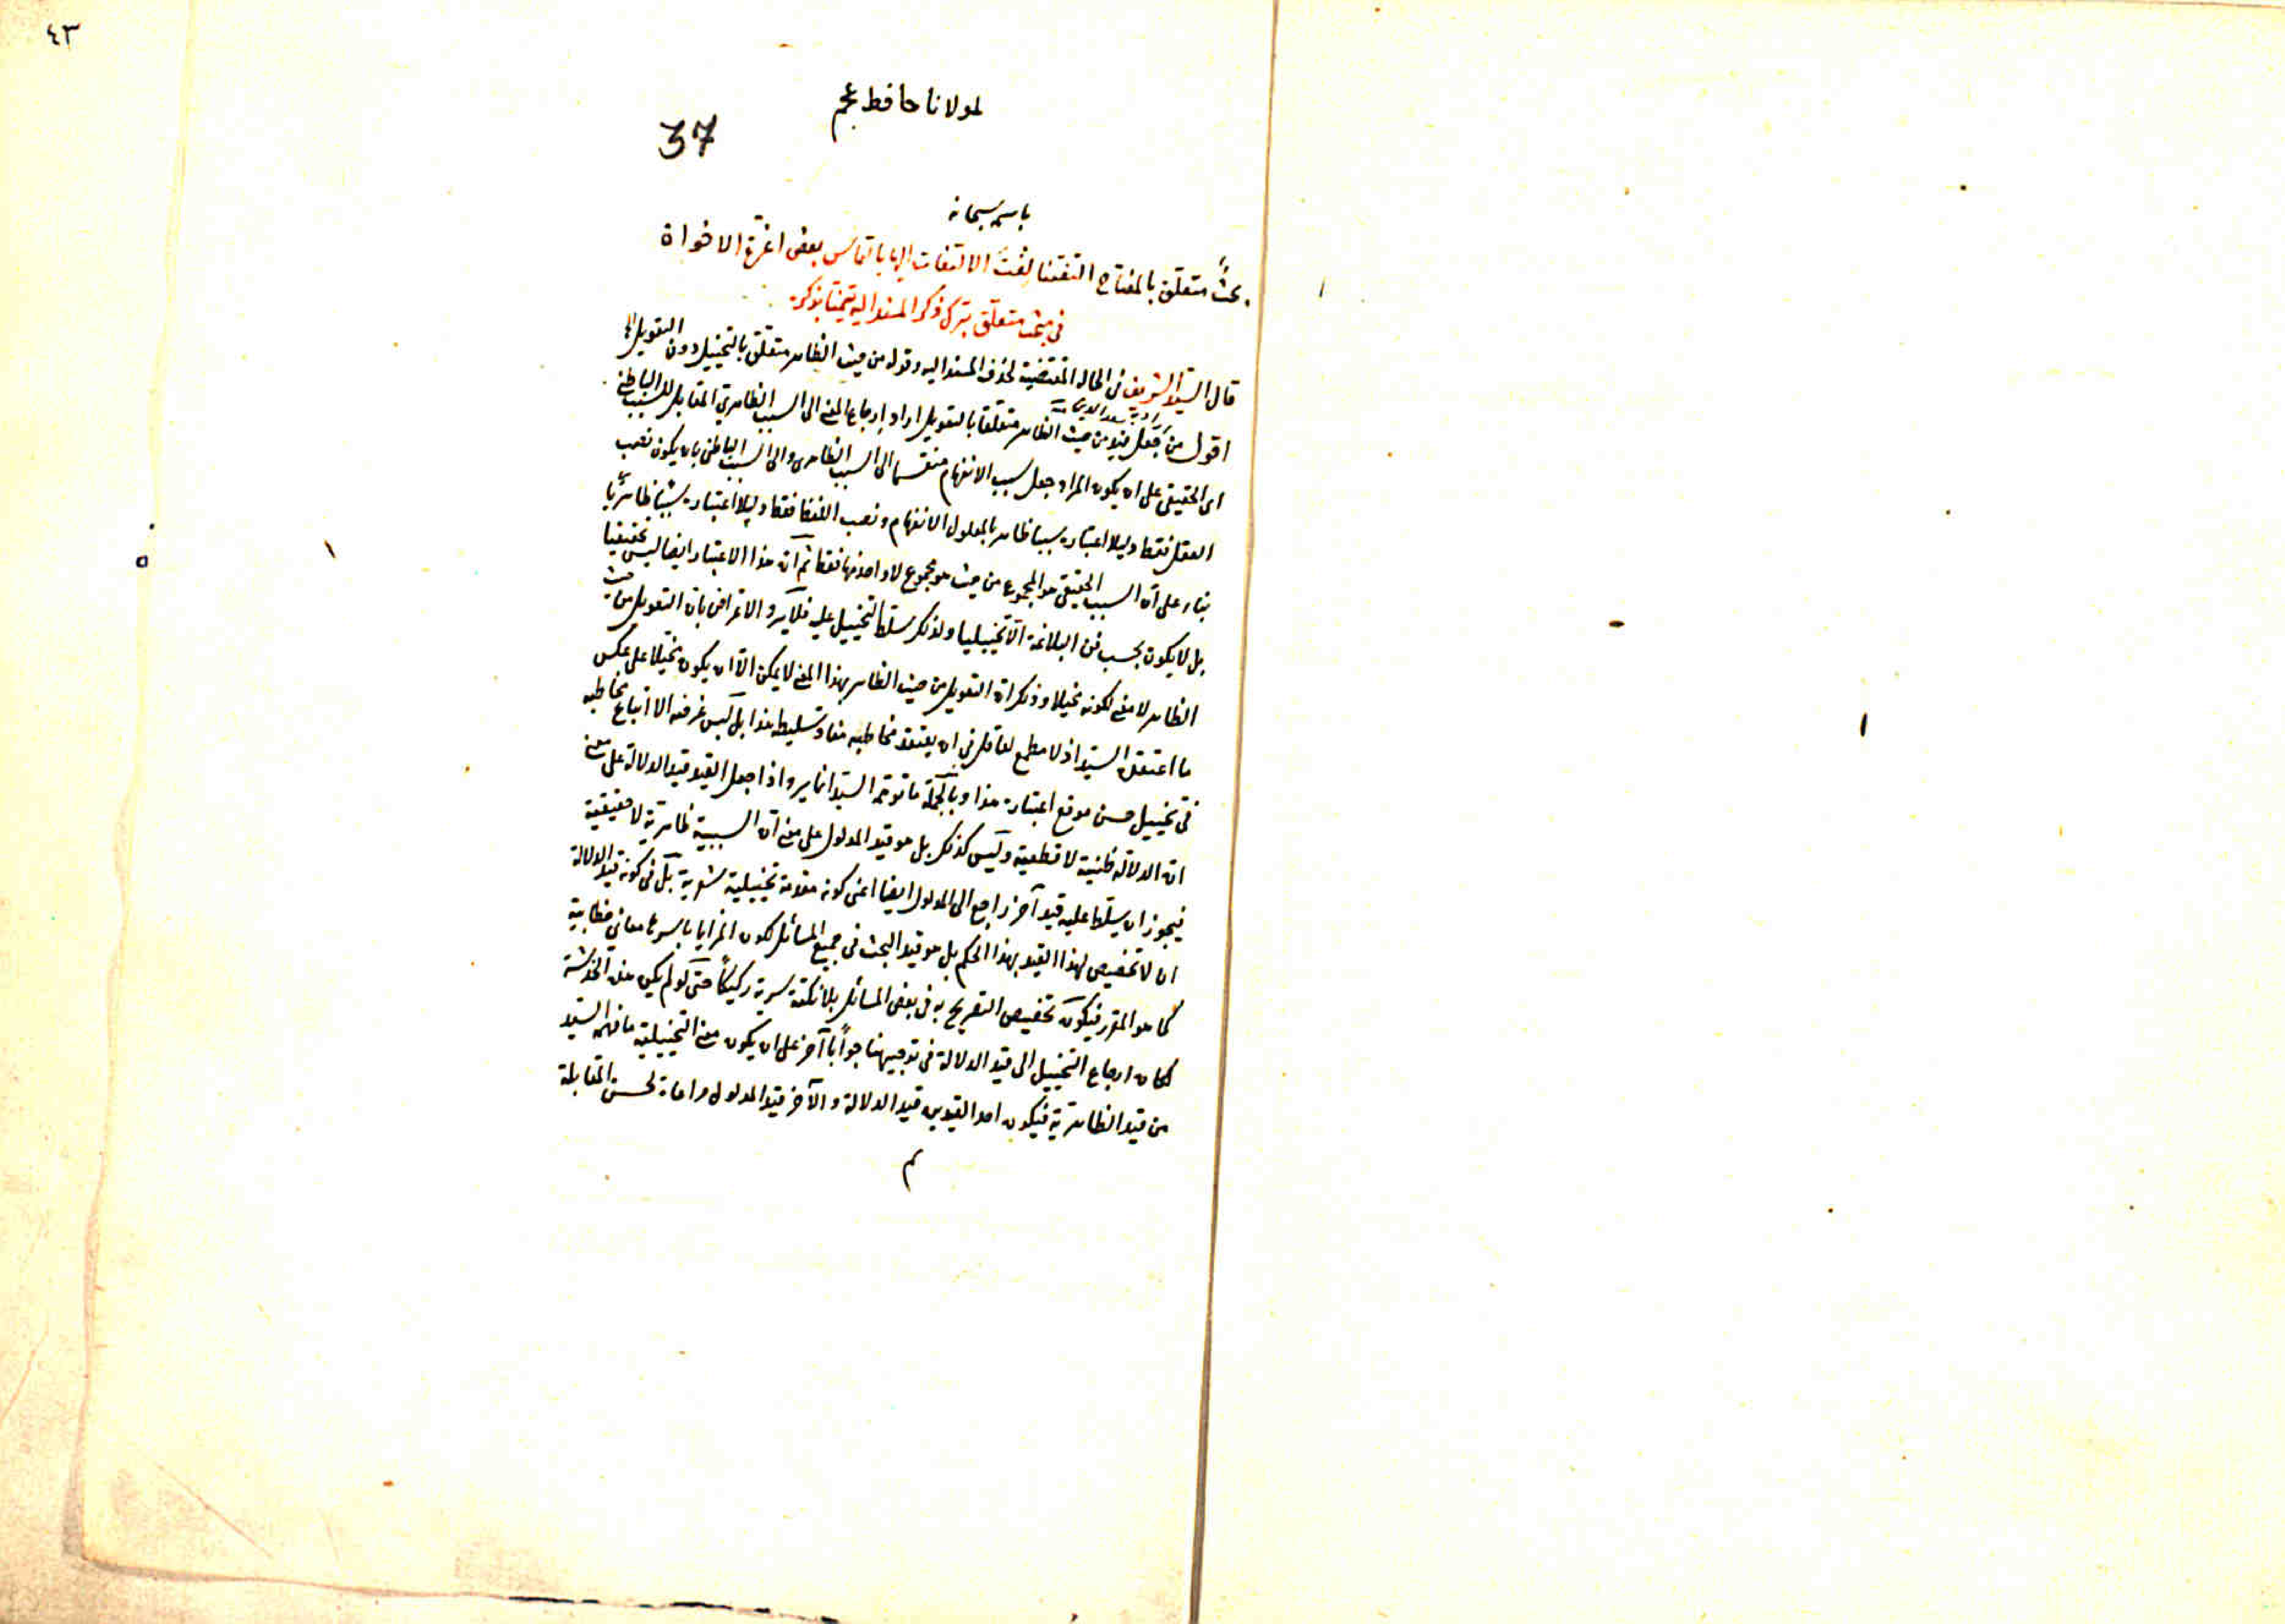 ٤٣
لمولانا حافظ عجم
37
باسمه سبحانه
بحث متعلق بالمفتاح التفتنا لفت الالتفات اليها بالتماس بعض اعزة الاخوان
في مبحث متعلق بترك ذكر المسند اليه تيمنا بذكره
قال السيد الشريف في الحالة المقتضية لحذف المسند اليه وقوله من حيث الظاهر متعلق بالتخييل دون التعويل
اقول من جعل قيد من حيث الظاهر متعلقا بالتعويل اراد ارجاع المعنى الى السبب الظاهري المقابل للسبب الباطني
اراد به سعد الدين
اى الحقيقي على ان يكون المراد جعل سبب الانفهام منقسما الى السبب الظاهرى والى السبب الباطن بان يكون نصب
العقل فقط دليلا اعتباره سببا ظاهريا لمعلول الانفهام ونصب اللفظ فقط دليلا اعتباره سببا ظاهريا
بناء على ان السبب الحقيقي هو المجموع من حيث هو مجموع لا واحد منهما فقط ثم ان هذا الاعتبار ايضا ليس تحقيقيا
بل لا يكون بحسب فن البلاغة الا تخييليا ولذلك سلط التخييل عليه فلا يرد الاعتراض بان التعويل من حيث
الظاهر لا معنى لكونه تخيلا وذلك ان التعويل من حيث الظاهر بهذا المعنى لا يمكن الا ان يكون تخيلا على عكس
ما اعتقده السيد اذ لا مطمع لعاقل في ان يعتقد مخاطبه مفاد تسليطه هذا بل ليس غرضه الا اتباع مخاطبه
في تخييل حسن موقع اعتباره هذا وبالجملة ما توهمه السيد انما يرد اذا جعل القيد قيد الدلالة على معنى
ان الدلالة ظنية لا قطعية وليس كذلك بل هو قيد المدلول على معنى ان السببية ظاهرية لا حقيقية
فيجوز ان يسلط عليه قيد آخر راجع الى المدلول ايضا اعنى كونه مقدمة تخييلية شعرية بل في كونه قيد الدلالة
ان لا تخصيص لهذا القيد بهذا الحكم بل هو قيد البحث في جميع المسائل لكون المزايا باسرها معاني خطابية
كما هو المقرر فيكون تخصيص التصريح به في بعض المسائل بلا نكتة سرية ركيكا حتى لو لم يكن هذه الخدشة
لكان ارجاع التخييل الى قيد الدلالة في توجيهنا جوابا آخر على ان يكون معنى التخييلية ما فهمه السيد
من قيد الظاهرية فيكون احد القيدين قيد الدلالة والآخر قيد المدلول مراعاة لحسن المقابلة
م